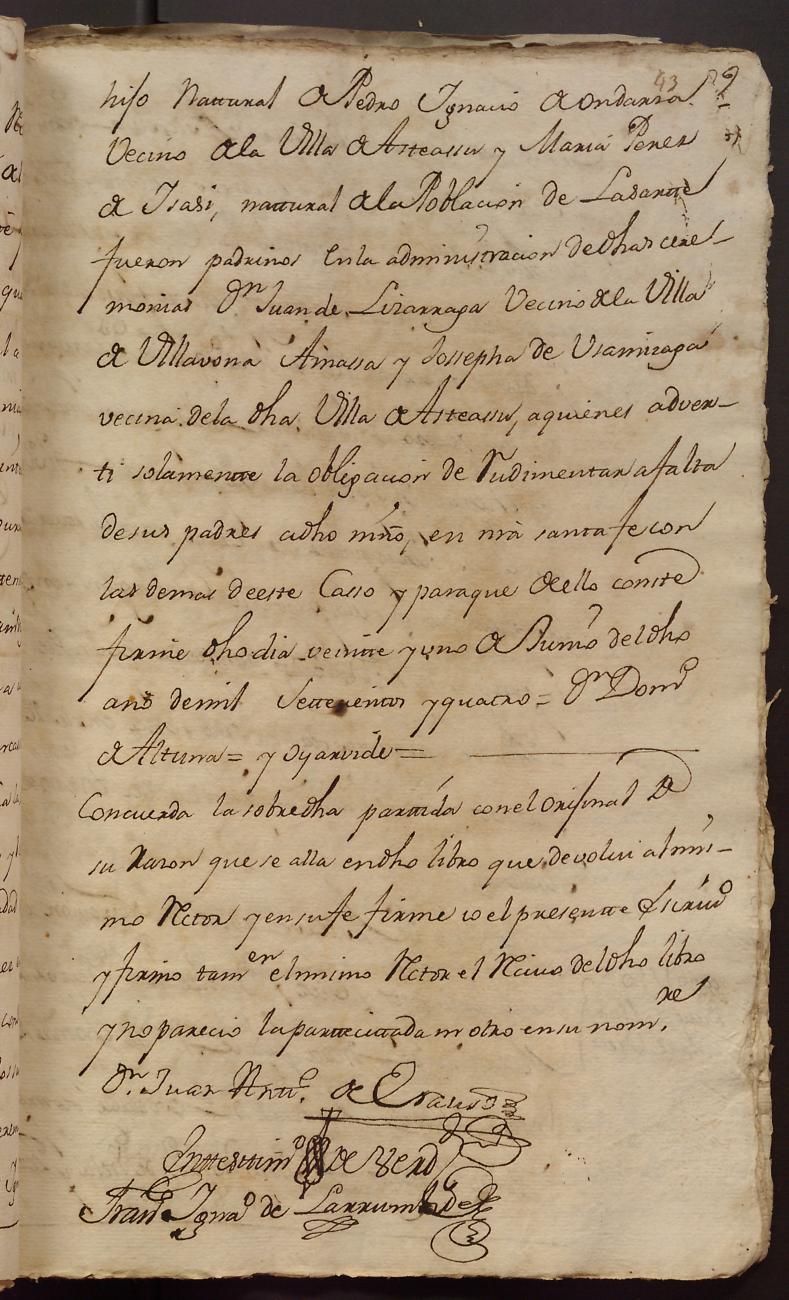 43
hijo Nattural de Pedro Ygnacio de ondarra
Vecino de la Villa de Asteassu y Maria Perez
de Isasi, nattural de la Poblacion de Lasartte
fueron padrinos en la administracion de dhas cere-
monias Dn Juan de Lizarraga Vecino de la Villa
de Villavona Amassa y Jossepha de Usamizaga
vecina de la dha Villa de Asteassu, aquienes adver-
ti solamente la obligacion de Rudimentar a falta
desus padres adho niño, en nrâ santa fe con
las demas deeste Casso y paraque dello conste
firme dho dia veintte y uno de del dho
año demil Settecientos y quatro = Dn Domo
de Altuna = y Oyarvide =
Concuerda la sobredha parttida con el orijinal de
su Razon que se alla endho libro que devolvi al mis-
mo Rctor y ensufe firme io el presentte Escrivo
y firmo tamen elmimo Rctor el Recivo del dho libro
y no parecio la parttecittada ni otro en su nom,re
Dn Juan Antto. de Erauso
En testtimo de Verd
Franco Ygnao de Larrumbide